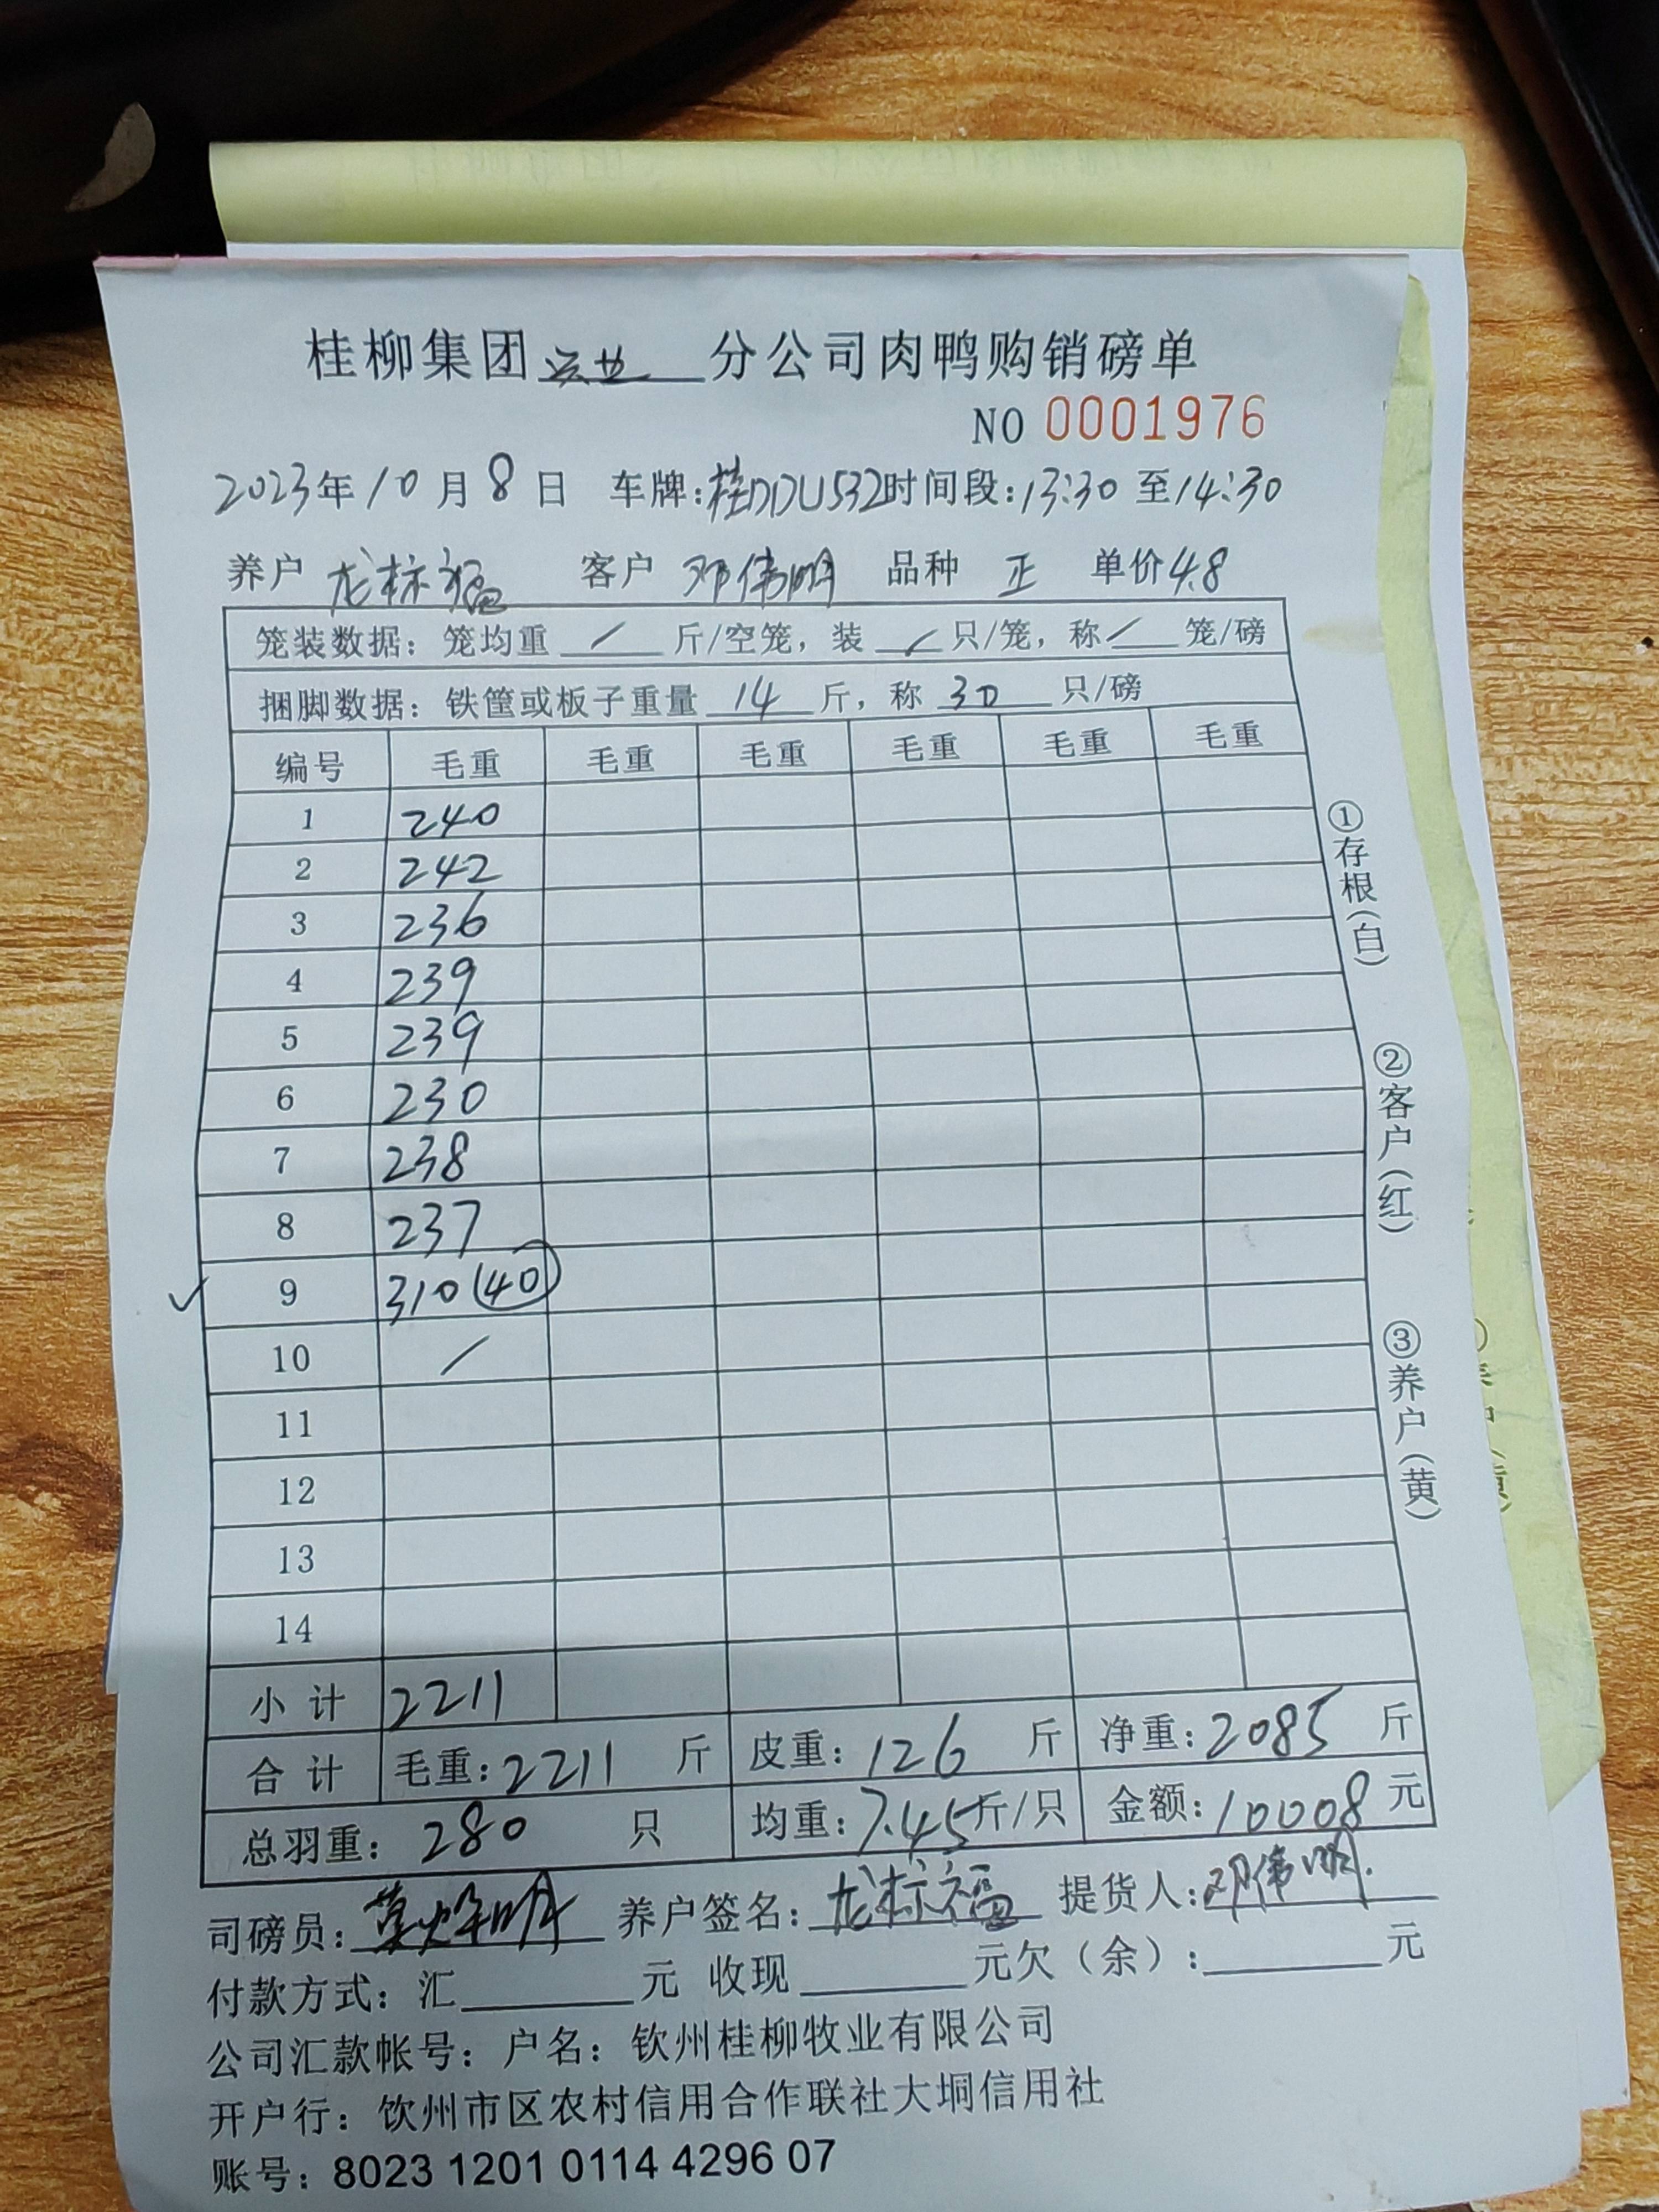 桂柳集团 分公司肉鸭购销磅单
NO 0001976
2023年10月8日 车牌:桂DDU532时间段:13:30至14:30
养户 龙标福 客户 邓伟明 品种 正 单价4.8
笼装数据：笼均重 / 斤/空笼，装 / 只/笼，称 / 笼/磅
捆脚数据：铁筐或板子重量 14 斤，称 30 只/磅
编号 毛重 毛重 毛重 毛重 毛重 毛重
1 240
2 242
3 236
4 239
5 239
6 230
7 238
8 237
✓ 9 310(40)
10 /
11
12
13
14
小计 2211
合计 毛重:2211 斤 皮重:126 斤 净重:2085 斤
总羽重:280 只 均重:7.45斤/只 金额:10008元
司磅员: 养户签名:龙标福 提货人:邓伟明.
付款方式：汇 元 收现 元欠（余）: 元
公司汇款帐号：户名：钦州桂柳牧业有限公司
开户行：饮州市区农村信用合作联社大垌信用社
账号：8023 1201 0114 4296 07
①存根(白)
②客户(红)
③养户(黄)